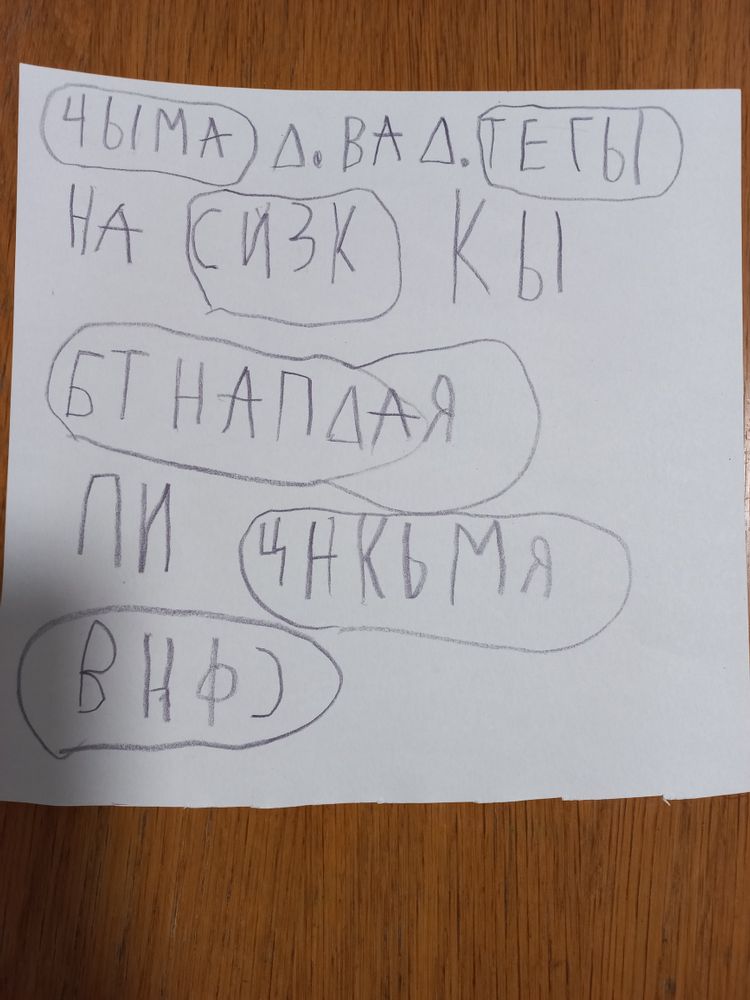 ЧЫМА Д. ВАД. ТЕГЫ
НА СИЗК КЫ
БТНАПДАЯ
ПИ ЦНКЬМЯ
ВНФ